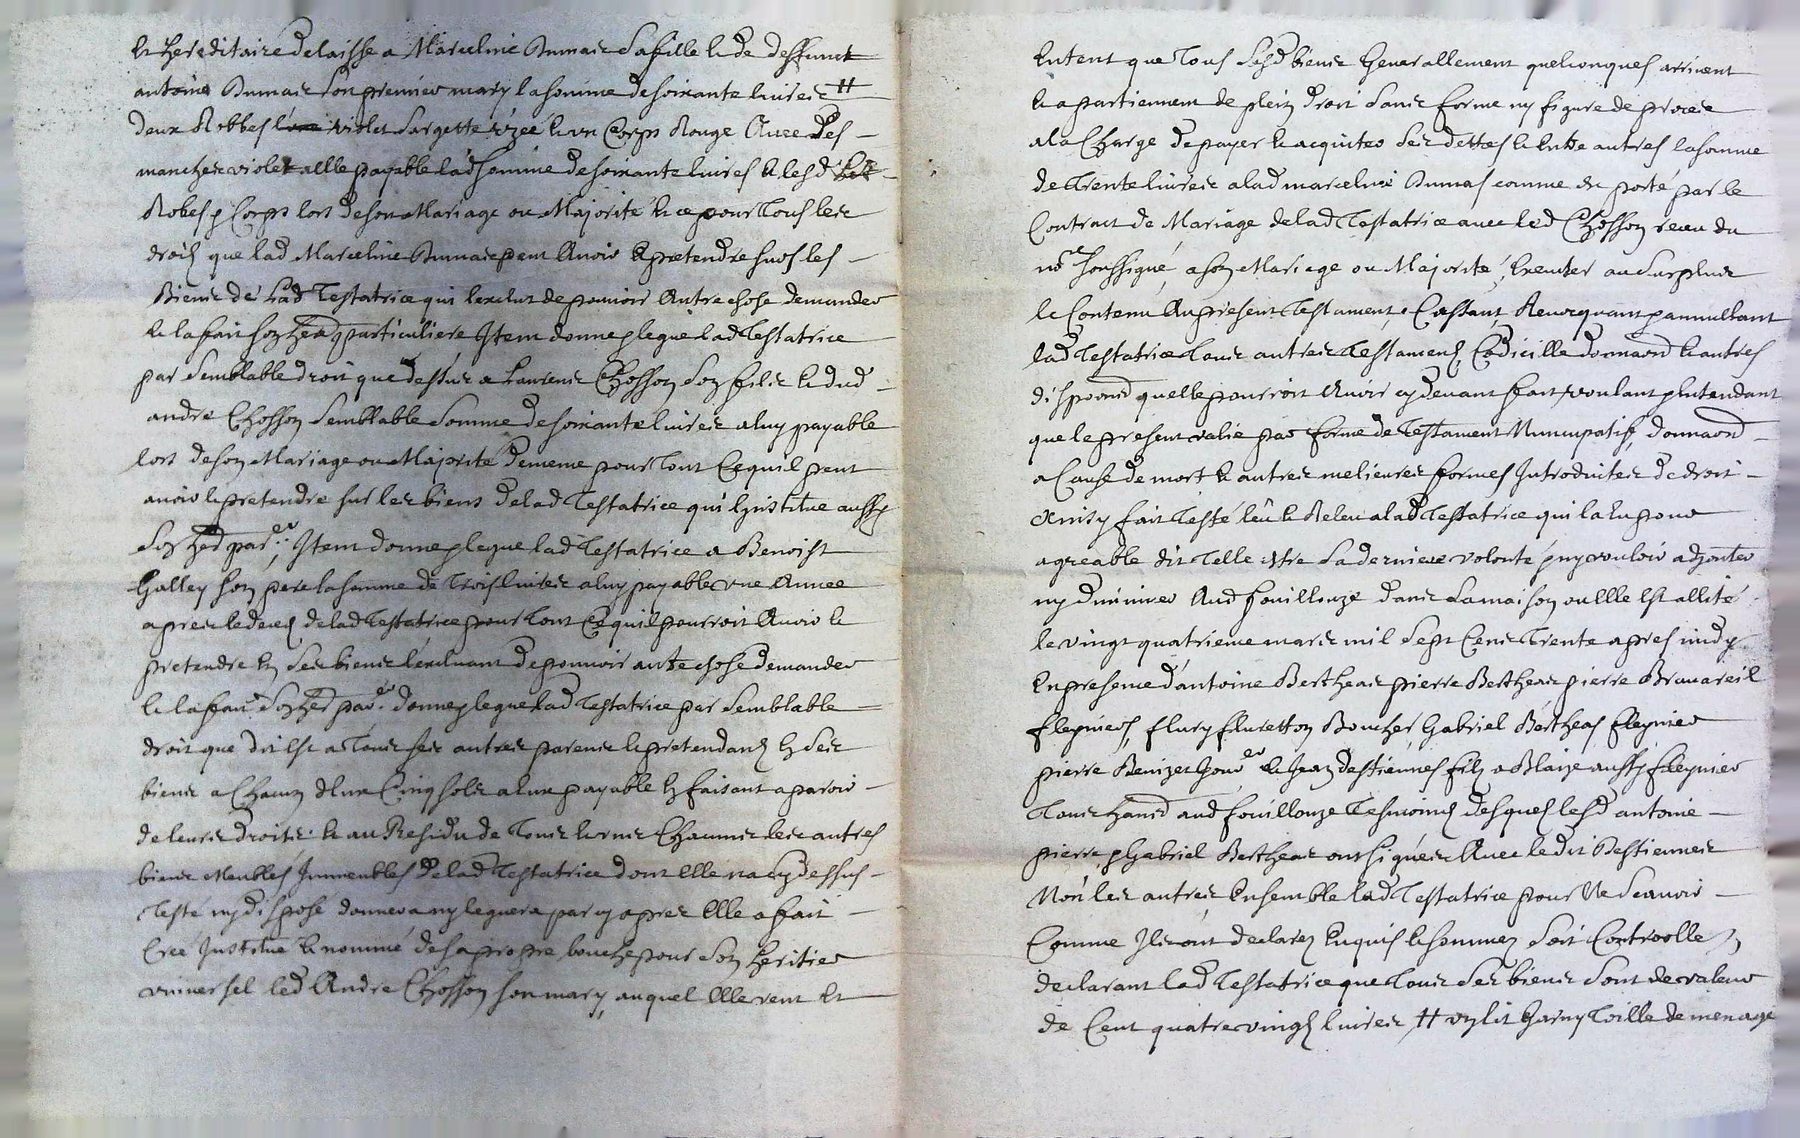 et hereditaire delaisse a Marceline Dumas sa fille et de deffunct
antoine Dumas son premier mary la somme de soixante livres #
deux Robbes violet sargette et un Corps Rouge Avec des
manches violet alle payable lad somme de soixante livres et lesd
Robes & Corps lors de son Mariage ou Majorité et ce pour tous les
droits que lad Marceline Dumas peut Avoir & pretendre sur les
Biens de Lad Testatrice qui lexclut de pouvoir Autre chose demander
et la fait son hers particuliere Item donne & legue lad Testatrice
par semblable droit que dessus a Laurens Chosson son fils et dud
andre Chosson semblable somme de soixante livres a luy payable
lors de son Mariage ou Majorité de meme pour tout Ce quil peut
avoir & pretendre sur les biens de lad Testatrice qui linstitue aussy
son herr parer Item donne & legue lad Testatrice a Benoist
Galley son pere la somme de Trois livres a luy payable une Annee
apres le deces de lad Testatrice pour tout Ce quil pourroit Avoir et
pretendre en ses biens lexcluant de pouvoir autre chose demander
et la fait son herr parer donne & legue lad Testatrice par semblable
droit que dit est a tous ses autres parens & pretendans en ses
biens a Chacun deux Cinq sols a eux payable en faisant aparoir
de leurs droits et au Residu de tous et uns Chacuns les autres
biens Meubles Immeubles de lad Testatrice dont elle na cy dessus
Testé ny disposé donnera ny leguera par cy apres Elle a fait
Creé Institué et nommé de sa propre bouche pour son heritier
universel led Andre Chosson son mary auquel elle veut et
Entent que tous sesd biens Generallement quelconques arrivent
et apartiennent de plein droit sans forme ny figure de proces
a la Charge de payer et acquiter ses dettes et Entre autres la somme
de Trente livres a lad marceline Dumas comme est porté par le
Contract de Mariage de lad Testatrice avec led Chosson receu du
nore soussigné, a son Mariage ou Majorité, Executer au surplus
le Contenu Au present Testament. Cassant, Revocquant & annullant
lad Testatrice tous autres Testamens Codicille donnaond et autres
dispoond quelle pourroit Avoir cy devant fait, voulant & entendant
que le present valie par forme de Testament Nuncupatif, donnaond
a Cause de mort et autres melieures formes Introduites de droit
Ainsy fait Testé leu et Releu a lad Testatrice qui la eu pour
agreable dit Telle estre sa derniere volonté & ny vouloir adjouter
ny diminuer Aud fouillouze dans la maison ou Elle est allité
le vingt quatrieme mars mil sept Cens trente apres midy
En presence d'antoine Bertheas pierre Bertheas pierre
fleynieo, flury fluretton Boucher Gabriel Bertheas
pierre et Jean destiennes fils a Blaize aussy
tous hand aud fouillouze tesmoins desquels lesd antoine
pierre & Gabriel Bertheas ont signés Avec le dit Destiennes
Non les autres Ensemble lad Testatrice pour Ne scavoir
Comme Ils ont declarez Enquis et sommez soit Controollé
declarant lad Testatrice que tous ses biens sont de valeur
de Cent quatre vingts livres # un lit Garny toille de menage